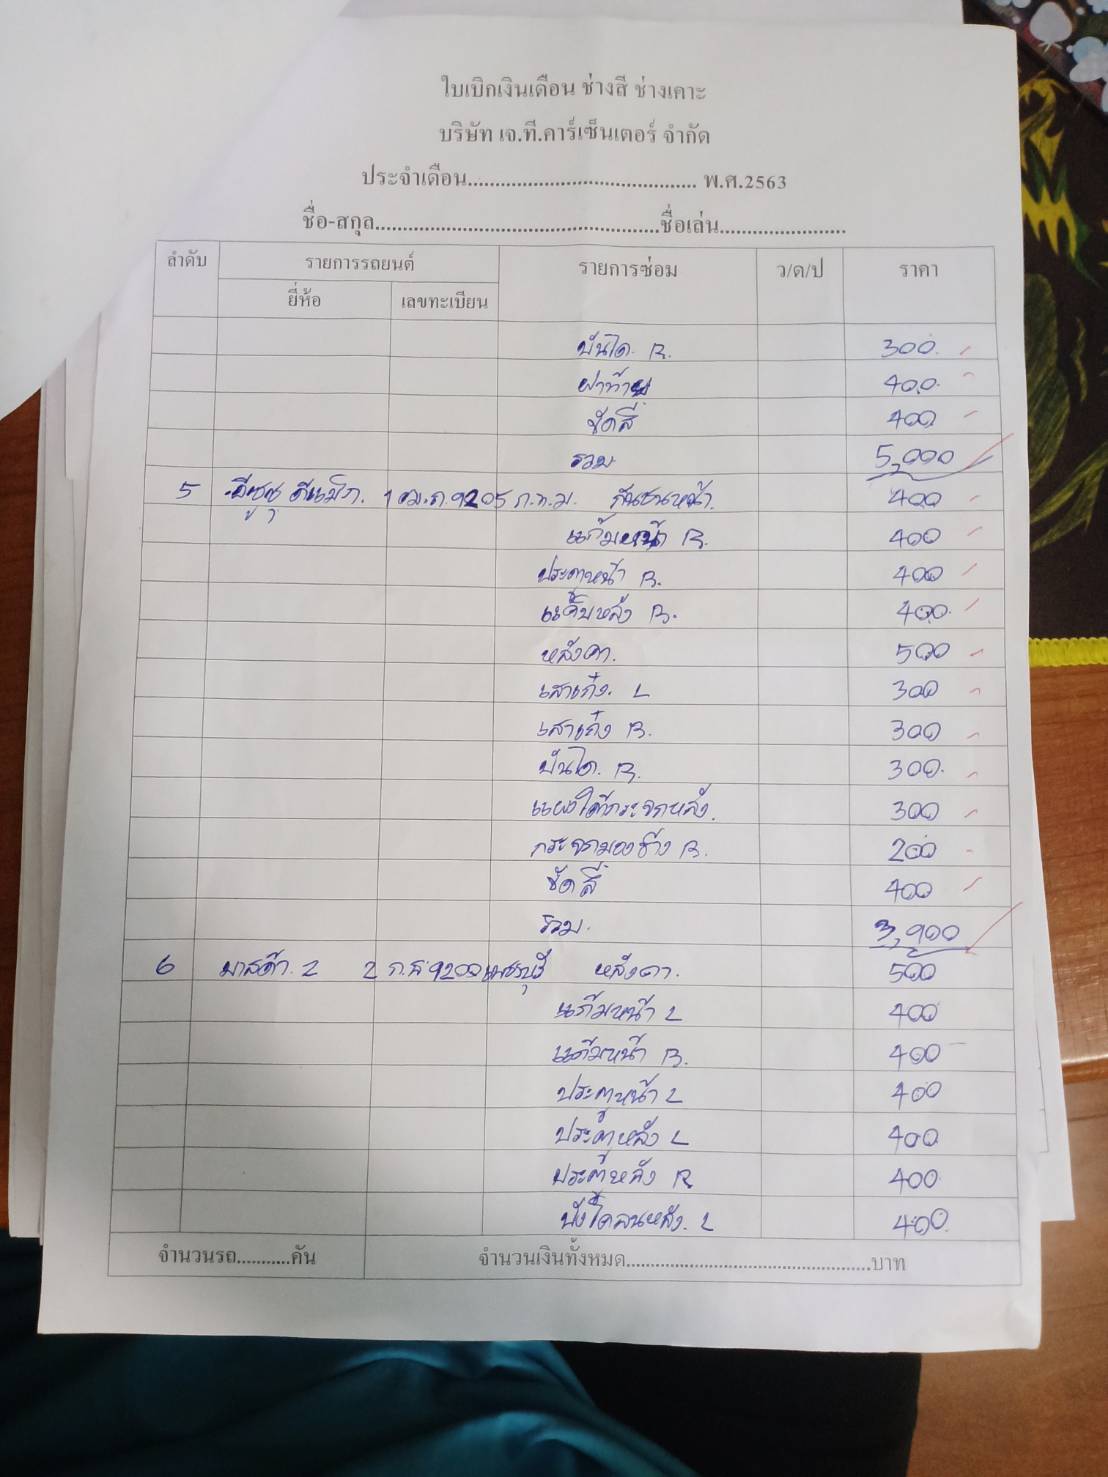 ใบเบิกเงินเดือน ช่างสี ช่างเคาะ
บริษัท เจ.ที.คาร์เซ็นเตอร์ จำกัด
ประจำเดือน.......................................... พ.ศ.2563
ชื่อ-สกุล....................................................ชื่อเล่น.......................
ลำดับ รายการรถยนต์ รายการซ่อม ว/ด/ป ราคา
ยี่ห้อ เลขทะเบียน
บันได R. 300
ฝาท้าย 400
ขัดสี 400
รวม 5,000
5 อีซูซุ ดีแม็ก. 1 ฒ.ถ 9205 ก.ท.ม. กันชนหน้า. 400
แก้มหน้า R. 400
ประตูหน้า R. 400
แค็บหลัง R. 400
หลังคา. 500
เสาเก๋ง. L 300
เสาเก๋ง R. 300
บันได. R. 300
แผงใต้กระจกหลัง. 300
กระจกมองข้าง R. 200
ขัดสี 400
รวม. 3,900
6 มาสด้า. 2 2 ก.ส 9200 เพชรบุรี หลังคา. 500
แก้มหน้า L 400
แก้มหน้า R. 400
ประตูหน้า L 400
ประตูหลัง L 400
ประตูหลัง R 400
บังโคลนหลัง. L 400
จำนวนรถ...........คัน จำนวนเงินทั้งหมด.............................................บาท